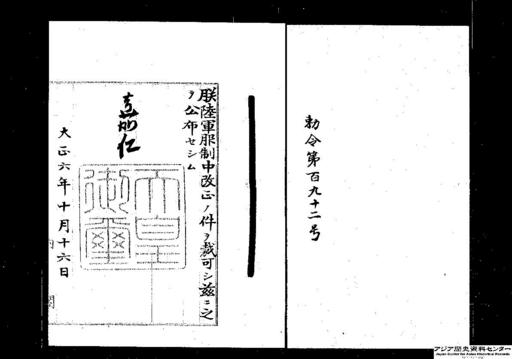 勅令第百九十二号
朕陸軍服制中改正ノ件ヲ裁可シ茲ニ之
ヲ公布セシム
嘉仁
天皇御璽
大正六年十月十六日
内閣
アジア歴史資料センター
Japan Center for Asian Historical Records